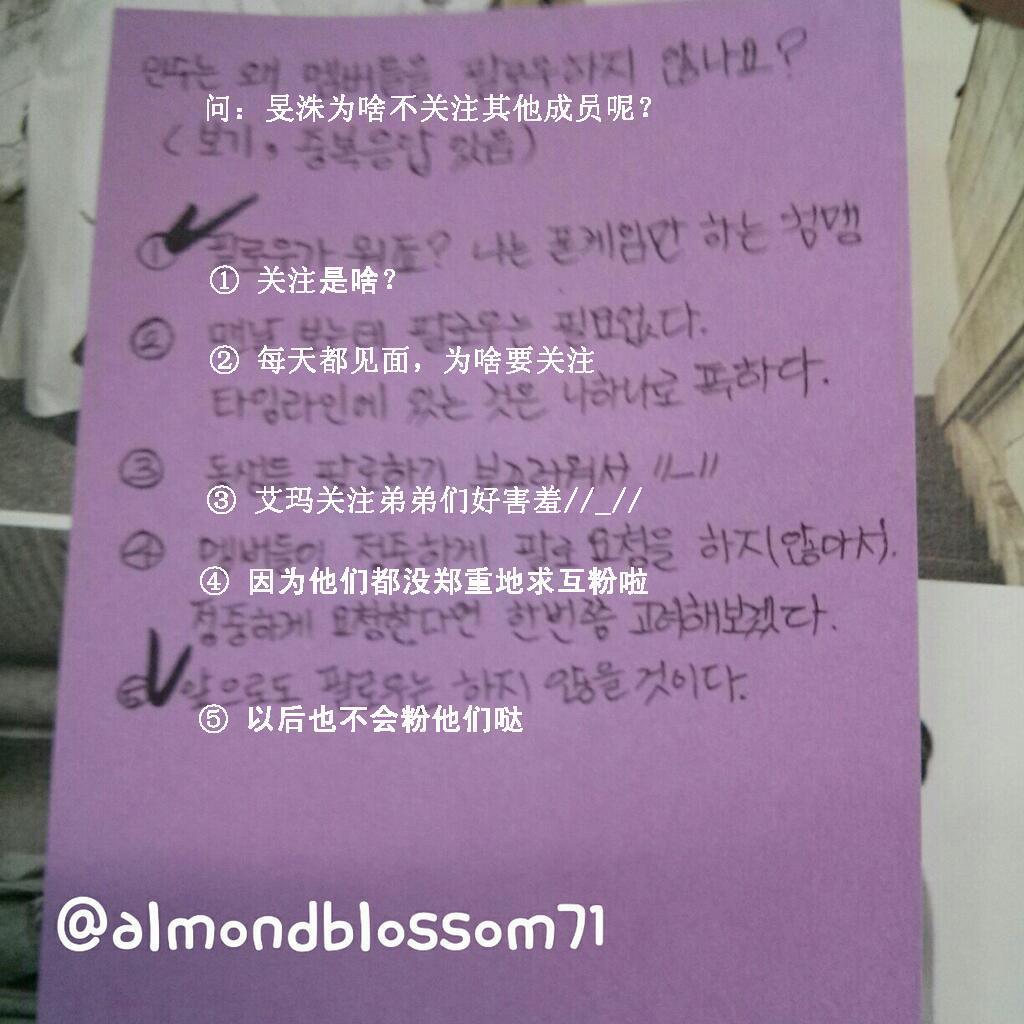 민수는 왜 멤버들을 팔로우하지 않나요?
问：旻洙为啥不关注其他成员呢？
(보기, 중복응답 있음)
① 팔로우가 뭐죠? 나는 폰게임만 하는 청맹
① 关注是啥？
② 맨날 보는데 팔로우는 필요없다.
② 每天都见面，为啥要关注
타임라인에 있는 것은 나하나로 족하다.
③ 동생들 팔로하기 부끄러워서 //_//
③ 艾玛关注弟弟们好害羞//_//
④ 멤버들이 정중하게 팔로 요청을 하지(않아서).
④ 因为他们都没郑重地求互粉啦
정중하게 요청한다면 한번쯤 고려해보겠다.
⑤ 앞으로도 팔로우는 하지 않을것이다.
⑤ 以后也不会粉他们哒
@almondblossom71